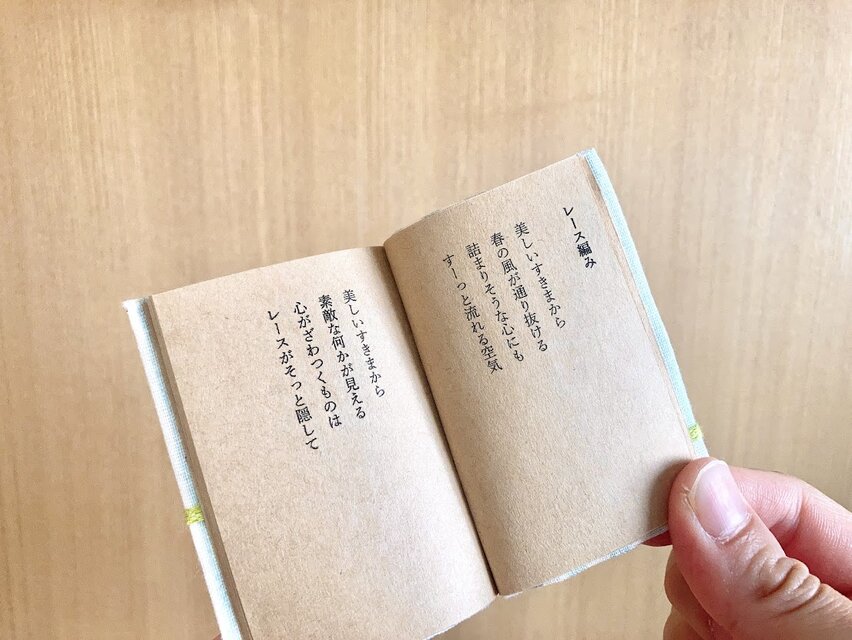 レース編み
美しいすきまから
春の風が通り抜ける
詰まりそうな心にも
すーっと流れる空気
美しいすきまから
素敵な何かが見える
心がざわつくものは
レースがそっと隠して